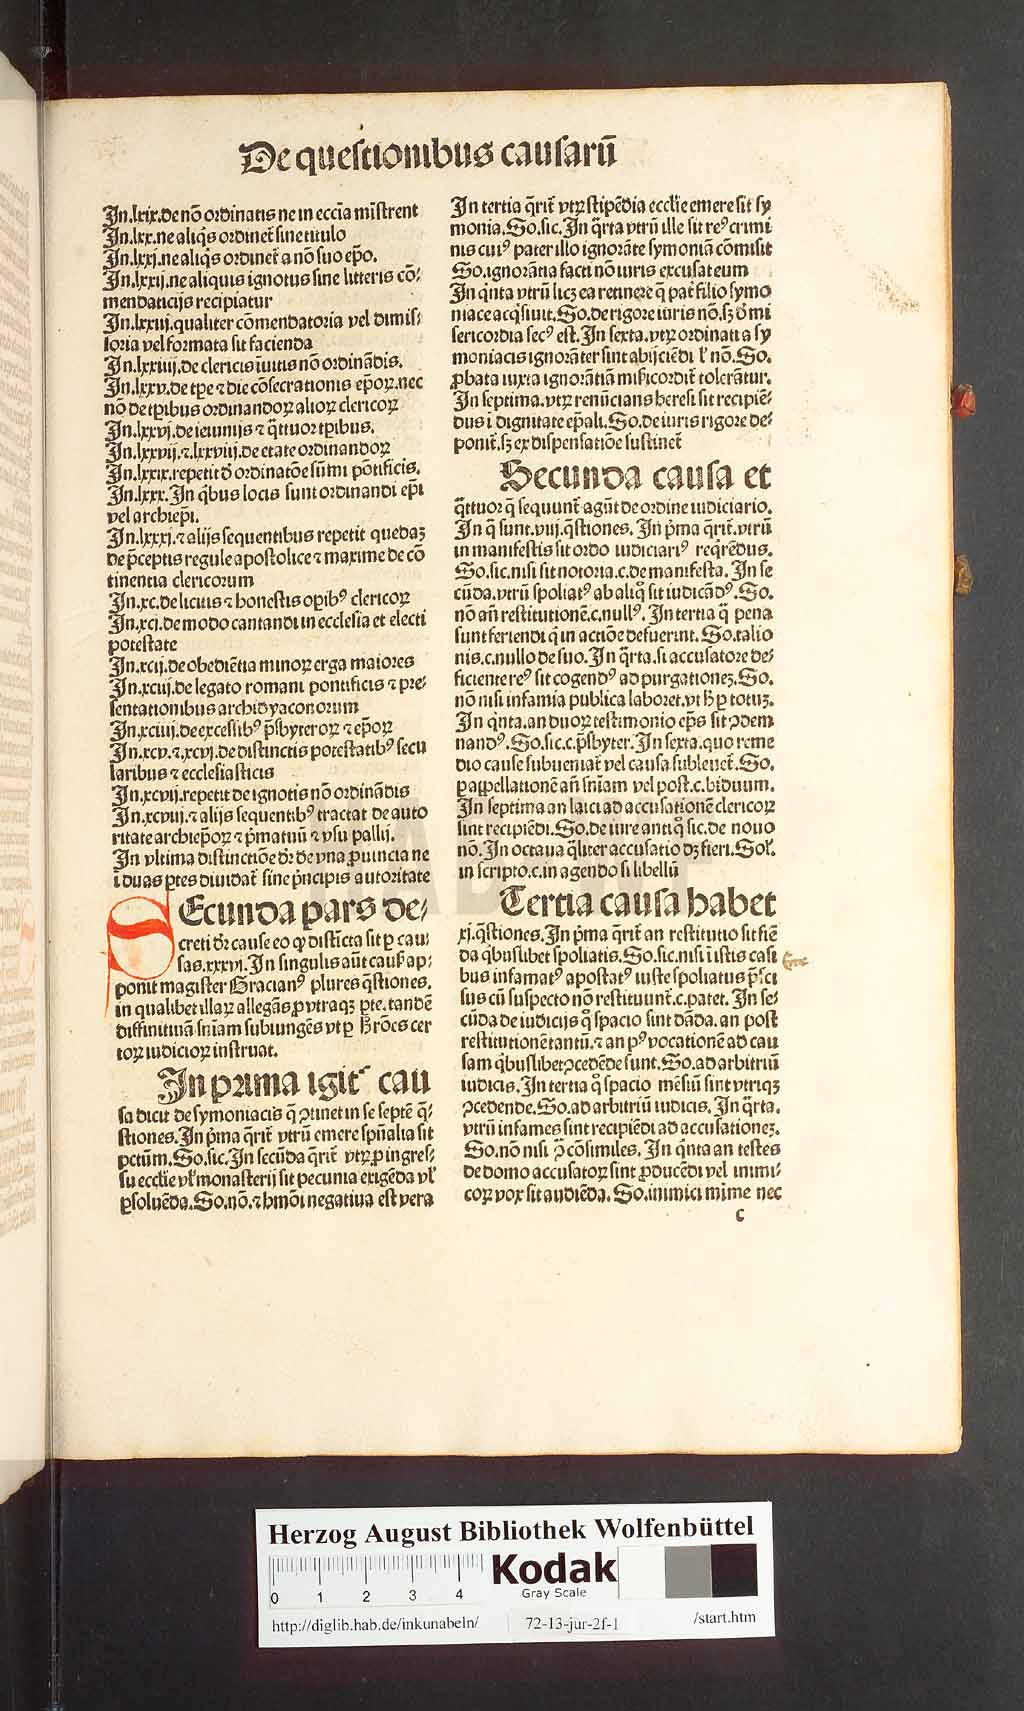 De questionibus causarū
In.lxix.de nō ordinatis ne in eccīa mīstrent
In.lxx.ne aliq̄s ordinet̄ sine titulo
In.lxxj.ne aliq̄s ordinet̄ a nō suo ep̄o.
In.lxxij.ne aliquis ignotus sine litteris cō⸗
mendaticijs recipiatur
In.lxxiij.qualiter cōmendatoria vel dimis⸗
soria vel formata sit facienda
In.lxxiiij.de clericis īuitis nō ordinādis.
In.lxxv.de tp̄e ⁊ die cōsecrationis ep̄oꝝ.nec
nō de tp̄ibus ordinandoꝝ alioꝝ clericoꝝ
In.lxxvj.de ieiunijs ⁊ q̄ttuor tp̄ibus.
In.lxxvij.⁊.lxxviij.de etate ordinandoꝝ
In.lxxix.repetit d̄ ordinatōe sūmi pōtificis.
In.lxxx.In q̄bus locis sunt ordinandi ep̄i
vel archiep̄i.
In.lxxxj.⁊ alijs sequentibus repetit quedaꝫ
de p̄ceptis regule apostolice ⁊ maxime de cō
tinentia clericorum
In.xc.de licitis ⁊ honestis op̄ibꝰ clericoꝝ
In.xcj.de modo cantandi in ecclesia et electi
potestate
In.xcij.de obediētia minoꝝ erga maiores
In.xciij.de legato romani pontificis ⁊ pre⸗
sentationibus archidyaconorum
In.xciiij.de excessibꝰ p̄sbyteroꝝ ⁊ ep̄oꝝ
In.xcv.⁊.xcvj.de distinctis potestatibꝰ secu
laribus ⁊ ecclesiasticis
In.xcvij.repetit de ignotis nō ordinādis
In.xcviij.⁊ alijs sequentibꝰ tractat de auto
ritate archiep̄oꝝ ⁊ p̄matuū ⁊ vsu pallij.
In vltima distinctiōe dr̄ de vna ꝓuincia ne
ī duas ꝑtes diuidat̄ sine p̄ncipis autoritate
SEcunda pars de⸗
creti dr̄ cause eo ꝙ distīcta sit ꝑ cau⸗
sas.xxxvj.In singulis aūt caus̄ ap⸗
ponit magister Gracianꝰ plures q̄stiones.
in qualibet illaꝝ allegās ꝓ vtraqꝫ ꝑte.tandē
diffinitiuā sn̄iam subiungēs vt ꝑ h̄ rōēs cer
toꝝ iudicioꝝ instruat.
In prima igit᷑ cau
sa dicit de symoniacis q̄ ꝯtinet in se septē q̄⸗
stiones.In p̄ma q̄rit̄ vtrū emere sp̄ualia sit
pctūm.So.sic.In secūda q̄rit̄ vtꝝ ꝓ ingres⸗
su eccl̄ie vl̓ monasterij sit pecunia exigēda vl̓
ꝑsoluēda.So.nō.⁊ hmōi negatiua est vera
In tertia q̄rit̄ vtꝝ stipēdia eccl̄ie emere sit sy
monia.So.sic.In q̄rta vtrū ille sit reꝰ crimi
nis cuiꝰ pater illo ignorāte symoniā cōmisit
So.ignorātia facti nō iuris excusat eum
In q̄nta vtrū licꝫ ea retinere q̄ pat̄ filio symo
niace acq̄siuit.So.de rigore iuris nō.sꝫ d̄ mi
sericordia secꝰ est.In sexta.vtꝝ ordinati a sy
moniacis ignorāter sint abijciēdi vl̓ nō.So.
ꝓbata iuxta ignorātiā mis̄icordit̄ tolerātur.
In septima.vtꝝ renūcians heresi sit recipiē⸗
dus ī dignitate ep̄ali.So.de iuris rigore de⸗
ponit̄.sꝫ ex dispensatiōe sustinet̄
Secunda causa et
q̄ttuor q̄ sequunt̄ agūt de ordine iudiciario.
In q̄ sunt.viij.q̄stiones.In p̄ma q̄rit̄.vtrū
in manifestis sit ordo iudiciariꝰ req̄rēdus.
So.sic.nisi sit notoria.c.de manifesta.In se
cūda.vtrū spoliatꝰ ab aliq̄ sit iudicādꝰ.So.
nō an̄ restitutionē.c.nullꝰ.In tertia q̄ pena
sunt feriendi q̄ in actiōe defuerint.So.talio
nis.c.nullo de suo.In q̄rta.si accusatore de⸗
ficiente reꝰ sit cogendꝰ ad purgationeꝫ.So.
nō nisi infamia publica laboret.vt h̄ ꝑ totuꝫ.
In q̄nta.an duoꝝ testimonio ep̄s sit ꝯdem
nandꝰ.So.sic.c.p̄sbyter.In sexta.quo reme
dio cause subueniat̄ vel causa subleuet̄.So.
ꝑ appellationē an̄ sn̄iam vel post.c.biduum.
In septima an laici ad accusationē clericoꝝ
sint recipiēdi.So.de iure antiq̄ sic.de nouo
nō.In octaua q̄liter accusatio dꝫ fieri.Sol̓.
in scripto.c.in agendo si libellū
Tertia causa habet
xj.q̄stiones.In p̄ma q̄rit̄ an restitutio sit fiē
da q̄buslibet spoliatis.So.sic.nisi ī istis casi
bus infamatꝰ apostatꝰ iuste spoliatus p̄sci
sus cū suspecto nō restituunt̄.c.patet.In se⸗
cūda de iudicijs q̄ spacio sint dāda.an post
restitutionē tantū.⁊ an pꝰ vocationē ad cau
sam q̄buslibet ꝯcedēde sunt.So.ad arbitriū
iudicis.In tertia q̄ spacio mēsiū sint vtriqꝫ
ꝯcedende.So.ad arbitriū iudicis.In q̄rta.
vtrū infames sint recipiēdi ad accusationeꝫ.
So.nō nisi ꝯ̄ cōsimiles.In q̄nta an testes
de domo accusatoꝝ sint ꝓducēdi vel inimi⸗
coꝝ vox sit audiēda.So.inimici mīme nec
c
Herzog August Bibliothek Wolfenbüttel
0 1 2 3 4
Kodak
Gray Scale
http://diglib.hab.de/inkunabeln/ 72-13-jur-2f-1 /start.htm